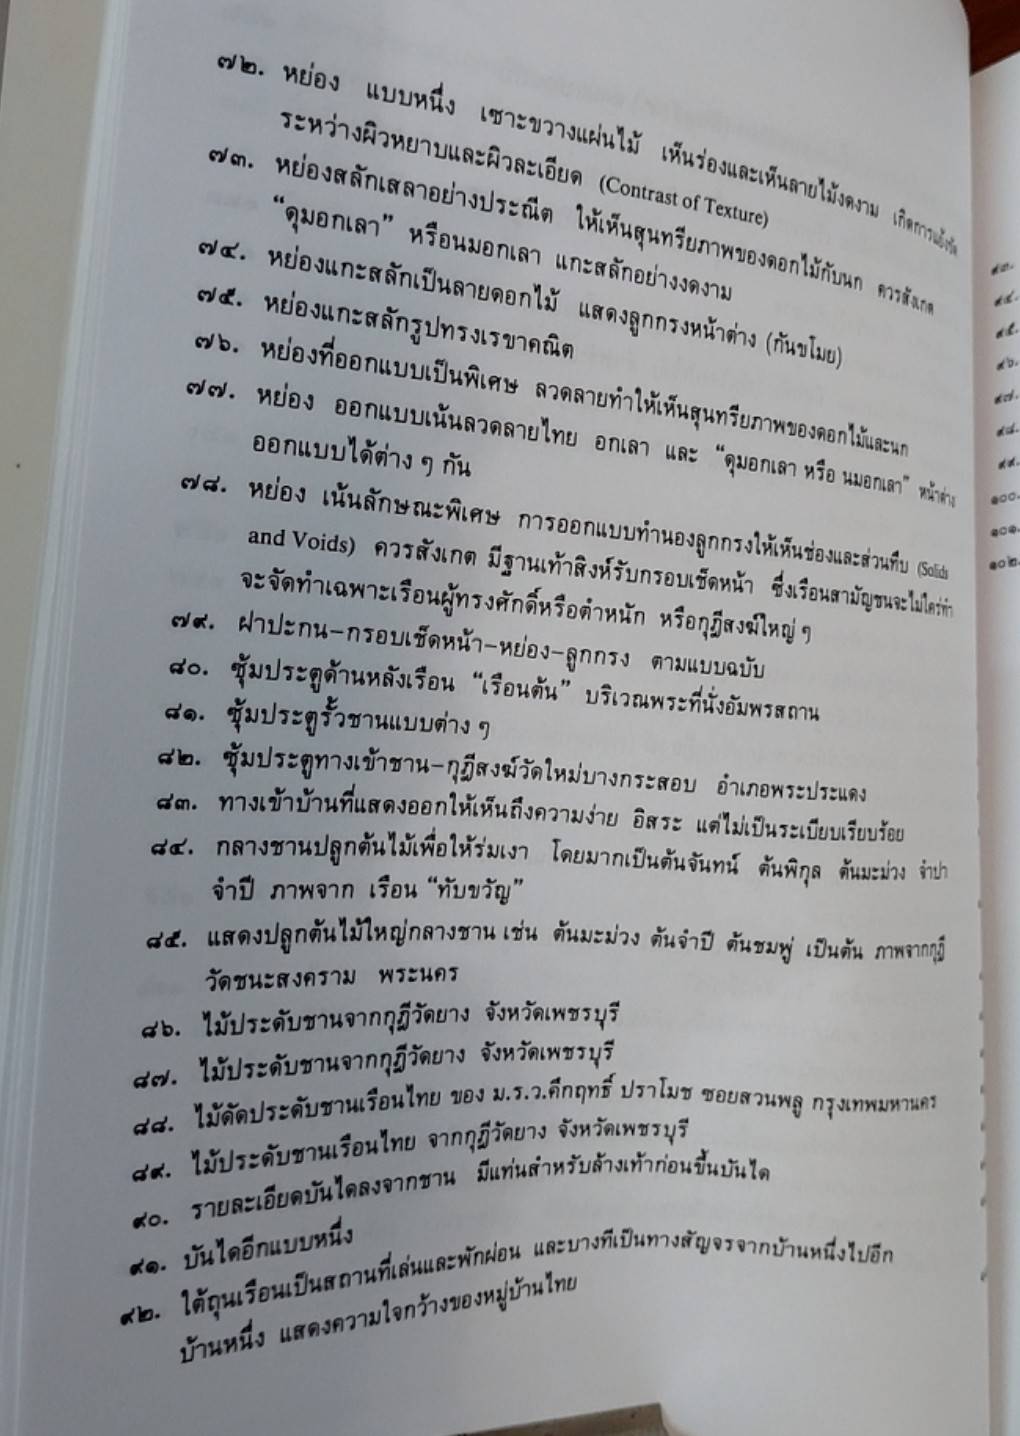 ๗๒. หย่อง แบบหนึ่ง เซาะขวางแผ่นไม้ เห็นร่องและเห็นลายไม้งดงาม เกิดการแย้งขัด
ระหว่างผิวหยาบและผิวละเอียด (Contrast of Texture)
๗๓. หย่องสลักเสลาอย่างประณีต ให้เห็นสุนทรียภาพของดอกไม้กับนก ควรสังเกต
“ดุมอกเลา” หรือนมอกเลา แกะสลักอย่างงดงาม
๗๔. หย่องแกะสลักเป็นลายดอกไม้ แสดงลูกกรงหน้าต่าง (กันขโมย)
๗๕. หย่องแกะสลักรูปทรงเรขาคณิต
๗๖. หย่องที่ออกแบบเป็นพิเศษ ลวดลายทำให้เห็นสุนทรียภาพของดอกไม้และนก
๗๗. หย่อง ออกแบบเน้นลวดลายไทย อกเลา และ “ดุมอกเลา หรือ นมอกเลา” หน้าต่าง
ออกแบบได้ต่าง ๆ กัน
๗๘. หย่อง เน้นลักษณะพิเศษ การออกแบบทำนองลูกกรงให้เห็นช่องและส่วนทึบ (Solids
and Voids) ควรสังเกต มีฐานเท้าสิงห์รับกรอบเช็ดหน้า ซึ่งเรือนสามัญชนจะไม่ใคร่ทำ
จะจัดทำเฉพาะเรือนผู้ทรงศักดิ์หรือตำหนัก หรือกุฎีสงฆ์ใหญ่ ๆ
๗๙. ฝาปะกน–กรอบเช็ดหน้า–หย่อง–ลูกกรง ตามแบบฉบับ
๘๐. ซุ้มประตูด้านหลังเรือน “เรือนต้น” บริเวณพระที่นั่งอัมพรสถาน
๘๑. ซุ้มประตูรั้วชานแบบต่าง ๆ
๘๒. ซุ้มประตูทางเข้าชาน–กุฎีสงฆ์วัดใหม่บางกระสอบ อำเภอพระประแดง
๘๓. ทางเข้าบ้านที่แสดงออกให้เห็นถึงความง่าย อิสระ แต่ไม่เป็นระเบียบเรียบร้อย
๘๔. กลางชานปลูกต้นไม้เพื่อให้ร่มเงา โดยมากเป็นต้นจันทน์ ต้นพิกุล ต้นมะม่วง จำปา
จำปี ภาพจาก เรือน “ทับขวัญ”
๘๕. แสดงปลูกต้นไม้ใหญ่กลางชาน เช่น ต้นมะม่วง ต้นจำปี ต้นชมพู่ เป็นต้น ภาพจากกุฎี
วัดชนะสงคราม พระนคร
๘๖. ไม้ประดับชานจากกุฎีวัดยาง จังหวัดเพชรบุรี
๘๗. ไม้ประดับชานจากกุฎีวัดยาง จังหวัดเพชรบุรี
๘๘. ไม้ดัดประดับชานเรือนไทย ของ ม.ร.ว.คึกฤทธิ์ ปราโมช ซอยสวนพลู กรุงเทพมหานคร
๘๙. ไม้ประดับชานเรือนไทย จากกุฎีวัดยาง จังหวัดเพชรบุรี
๙๐. รายละเอียดบันไดลงจากชาน มีแท่นสำหรับล้างเท้าก่อนขึ้นบันได
๙๑. บันไดอีกแบบหนึ่ง
๙๒. ใต้ถุนเรือนเป็นสถานที่เล่นและพักผ่อน และบางทีเป็นทางสัญจรจากบ้านหนึ่งไปอีก
บ้านหนึ่ง แสดงความใจกว้างของหมู่บ้านไทย
๙๓.
๙๔.
๙๕.
๙๖.
๙๗.
๙๘.
๙๙.
๑๐๐.
๑๐๑.
๑๐๒.